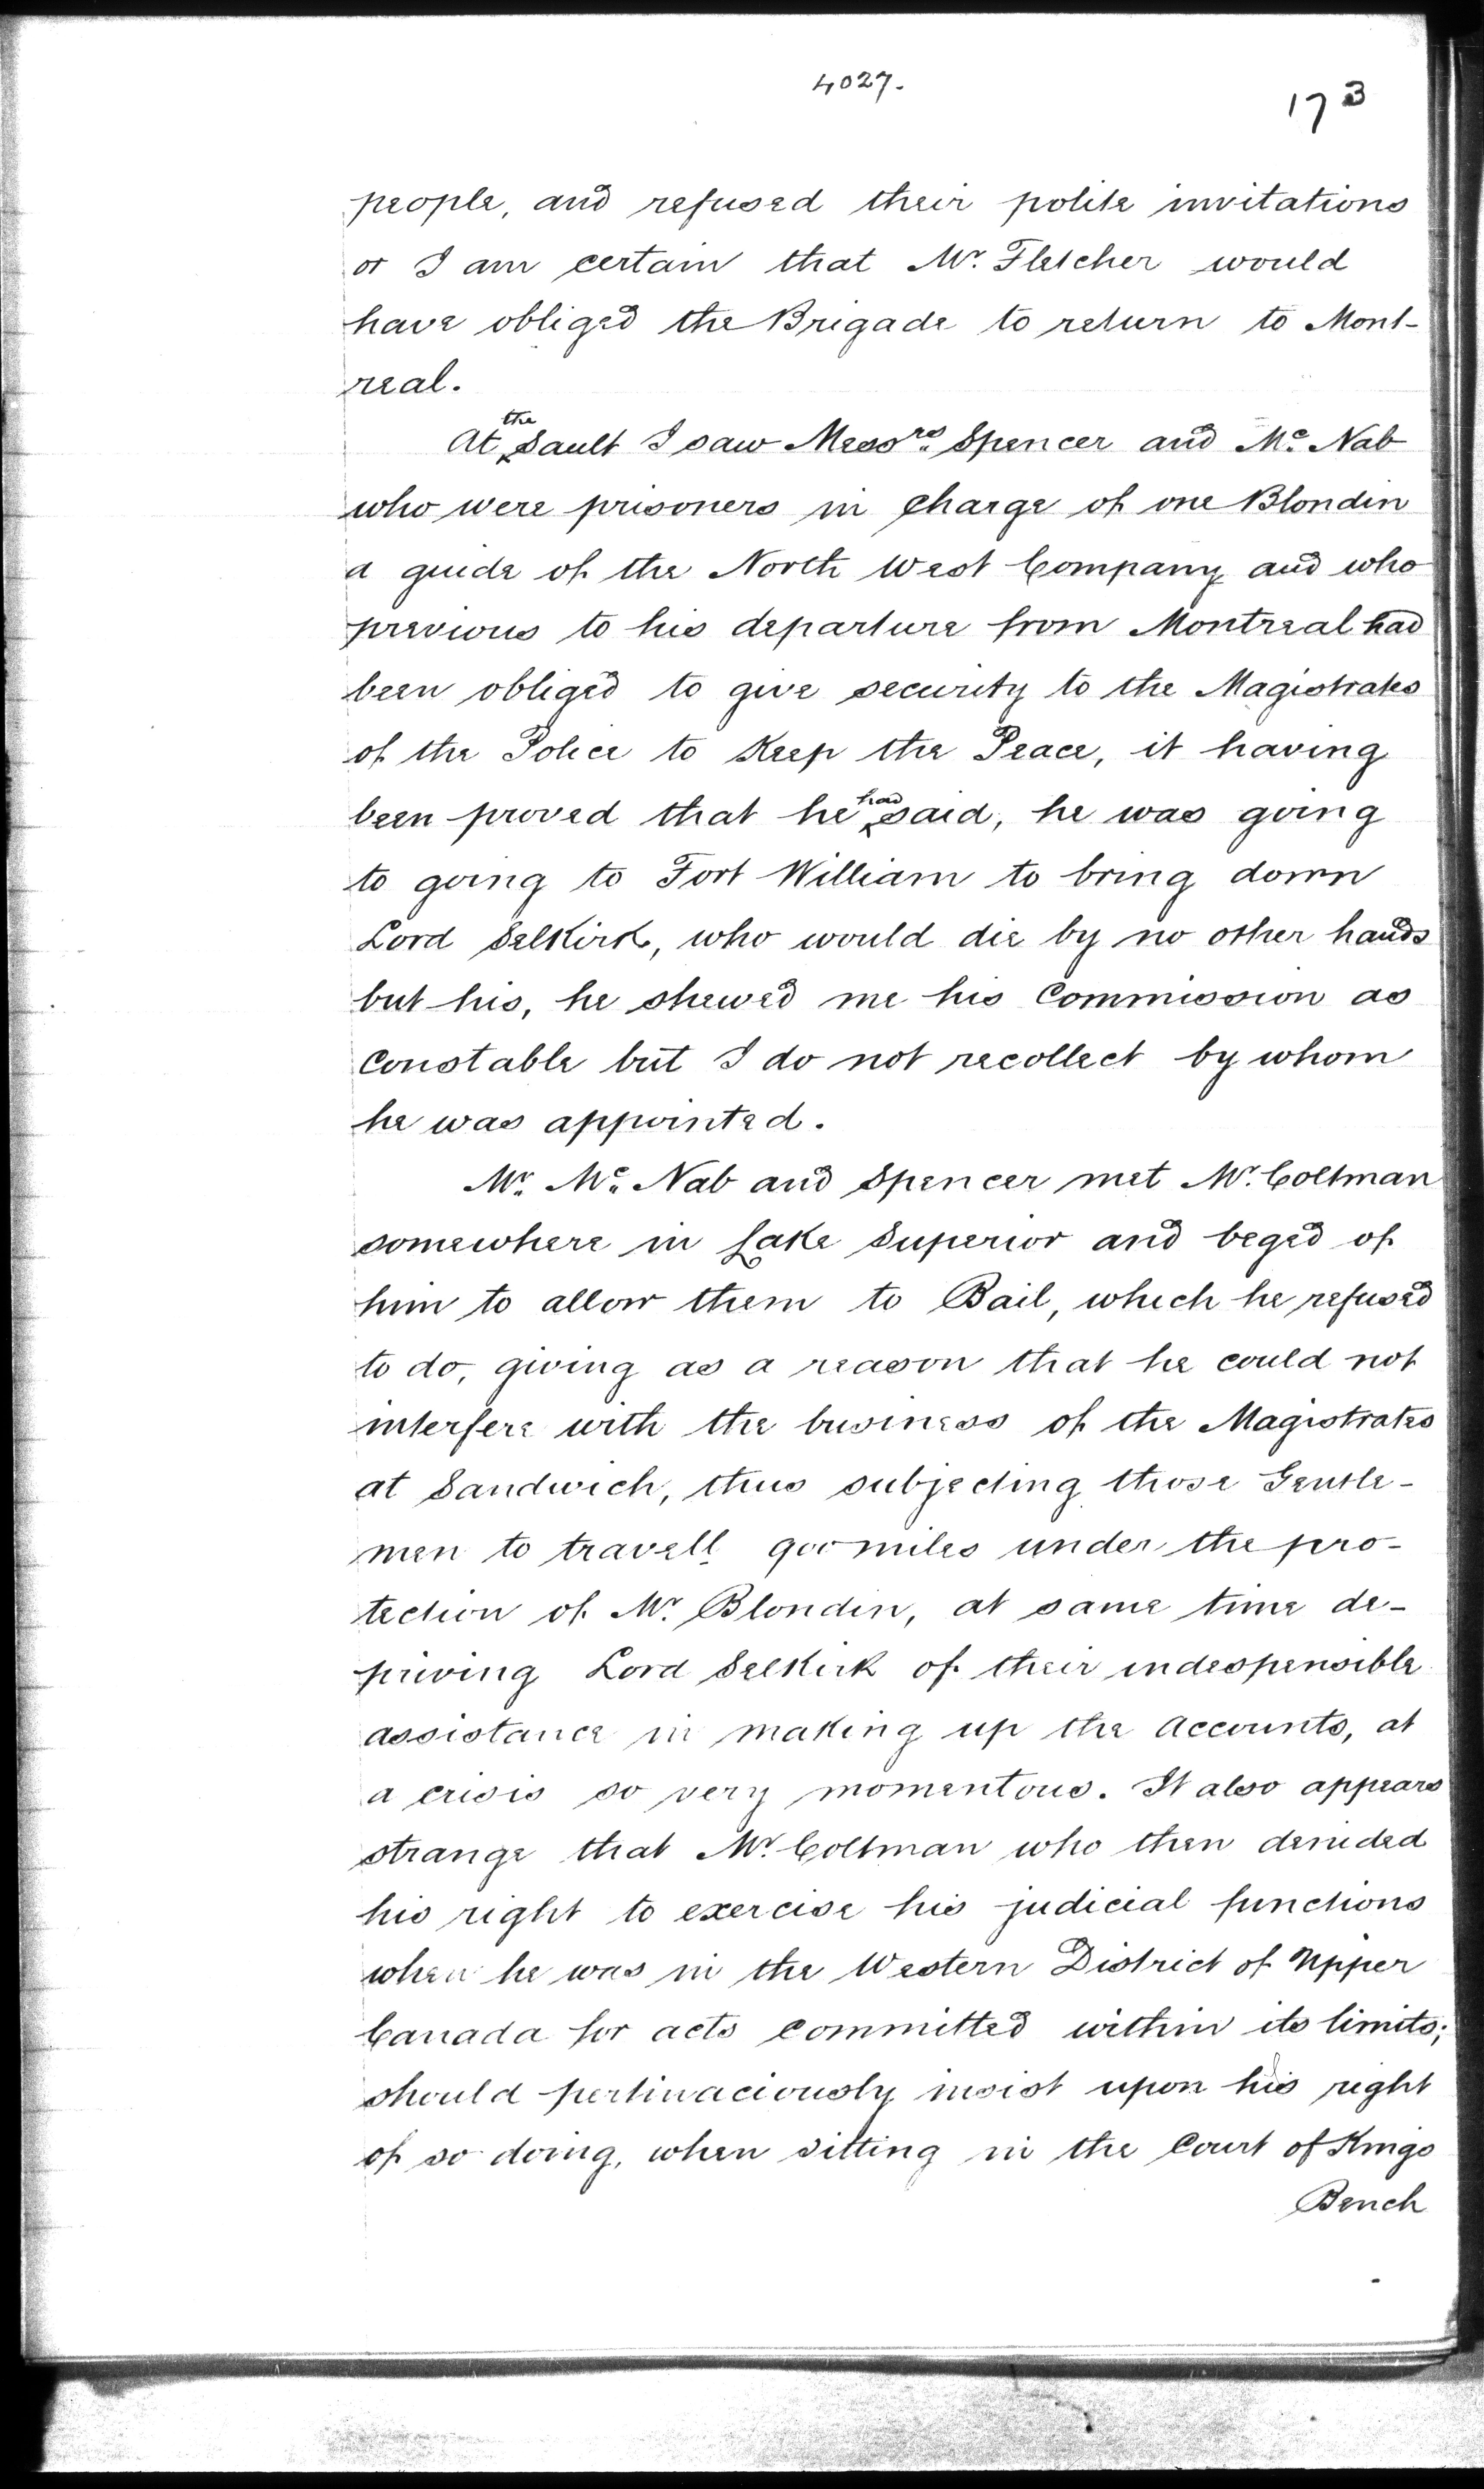 4027.
173
people, and refused their polite invitations
or I am certain that Mr. Fletcher would
have obliged the Brigade to return to Mont-
real.
At the Sault I saw Messrs. Spencer and Mc. Nab
who were prisoners in charge of one Blondin
a guide of the North West Company and who
previous to his departure from Montreal had
been obliged to give security to the Magistrates
of the Police to Keep the Peace, it having
been proved that he had said, he was going
to going to Fort William to bring down
Lord Selkirk, who would die by no other hands
but his, he shewed me his Commission as
Constable but I do not recollect by whom
he was appointed.
Mr. Mc. Nab and Spencer met Mr. Coltman
somewhere in Lake Superior and beged of
him to allow them to Bail, which he refused
to do, giving as a reason that he could not
interfere with the business of the Magistrates
at Sandwich, thus subjecting those Gentle-
men to travell 900 miles under the pro-
tection of Mr. Blondin, at same time de-
priving Lord Selkirk of their indespensible
assistance in making up the accounts, at
a crisis so very momentous. It also appears
strange that Mr. Coltman who then denided
his right to exercise his judicial functions
when he was in the Western District of Upper
Canada for acts committed within its limits;
should pertinaciously insist upon his right
of so doing, when sitting in the Court of Kings
Bench